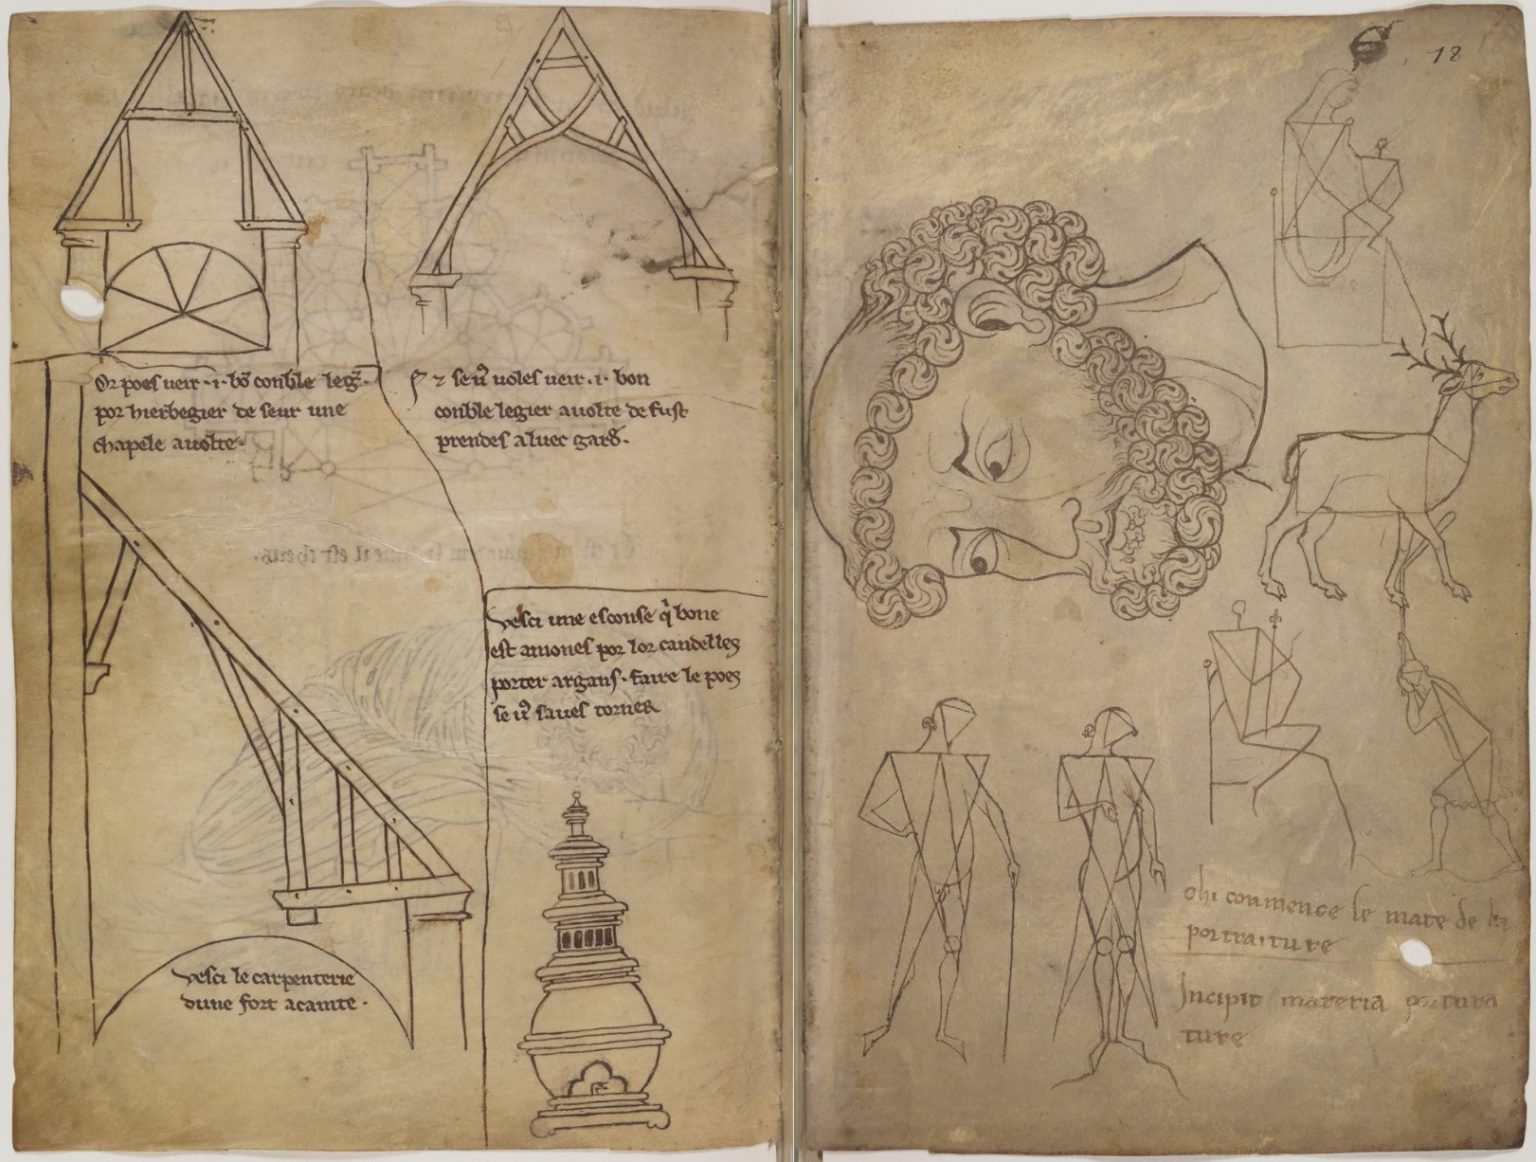 Or poes veir .i. bō conble legͬ.
por hierbegier de seur une
chapele avolte.
⁊ se vͦ voles veir .i. bon
conble legier avolte de fust
prendes aluec gard.
vesci une esconse q̇ bone
est amones por lor candelles
porter argans. faire le poes
se vͦ saves torner
vesci le carpenterie
dune fort acainte.
18
chi conmence le mate de la
portraiture
Incipit materia portura
ture